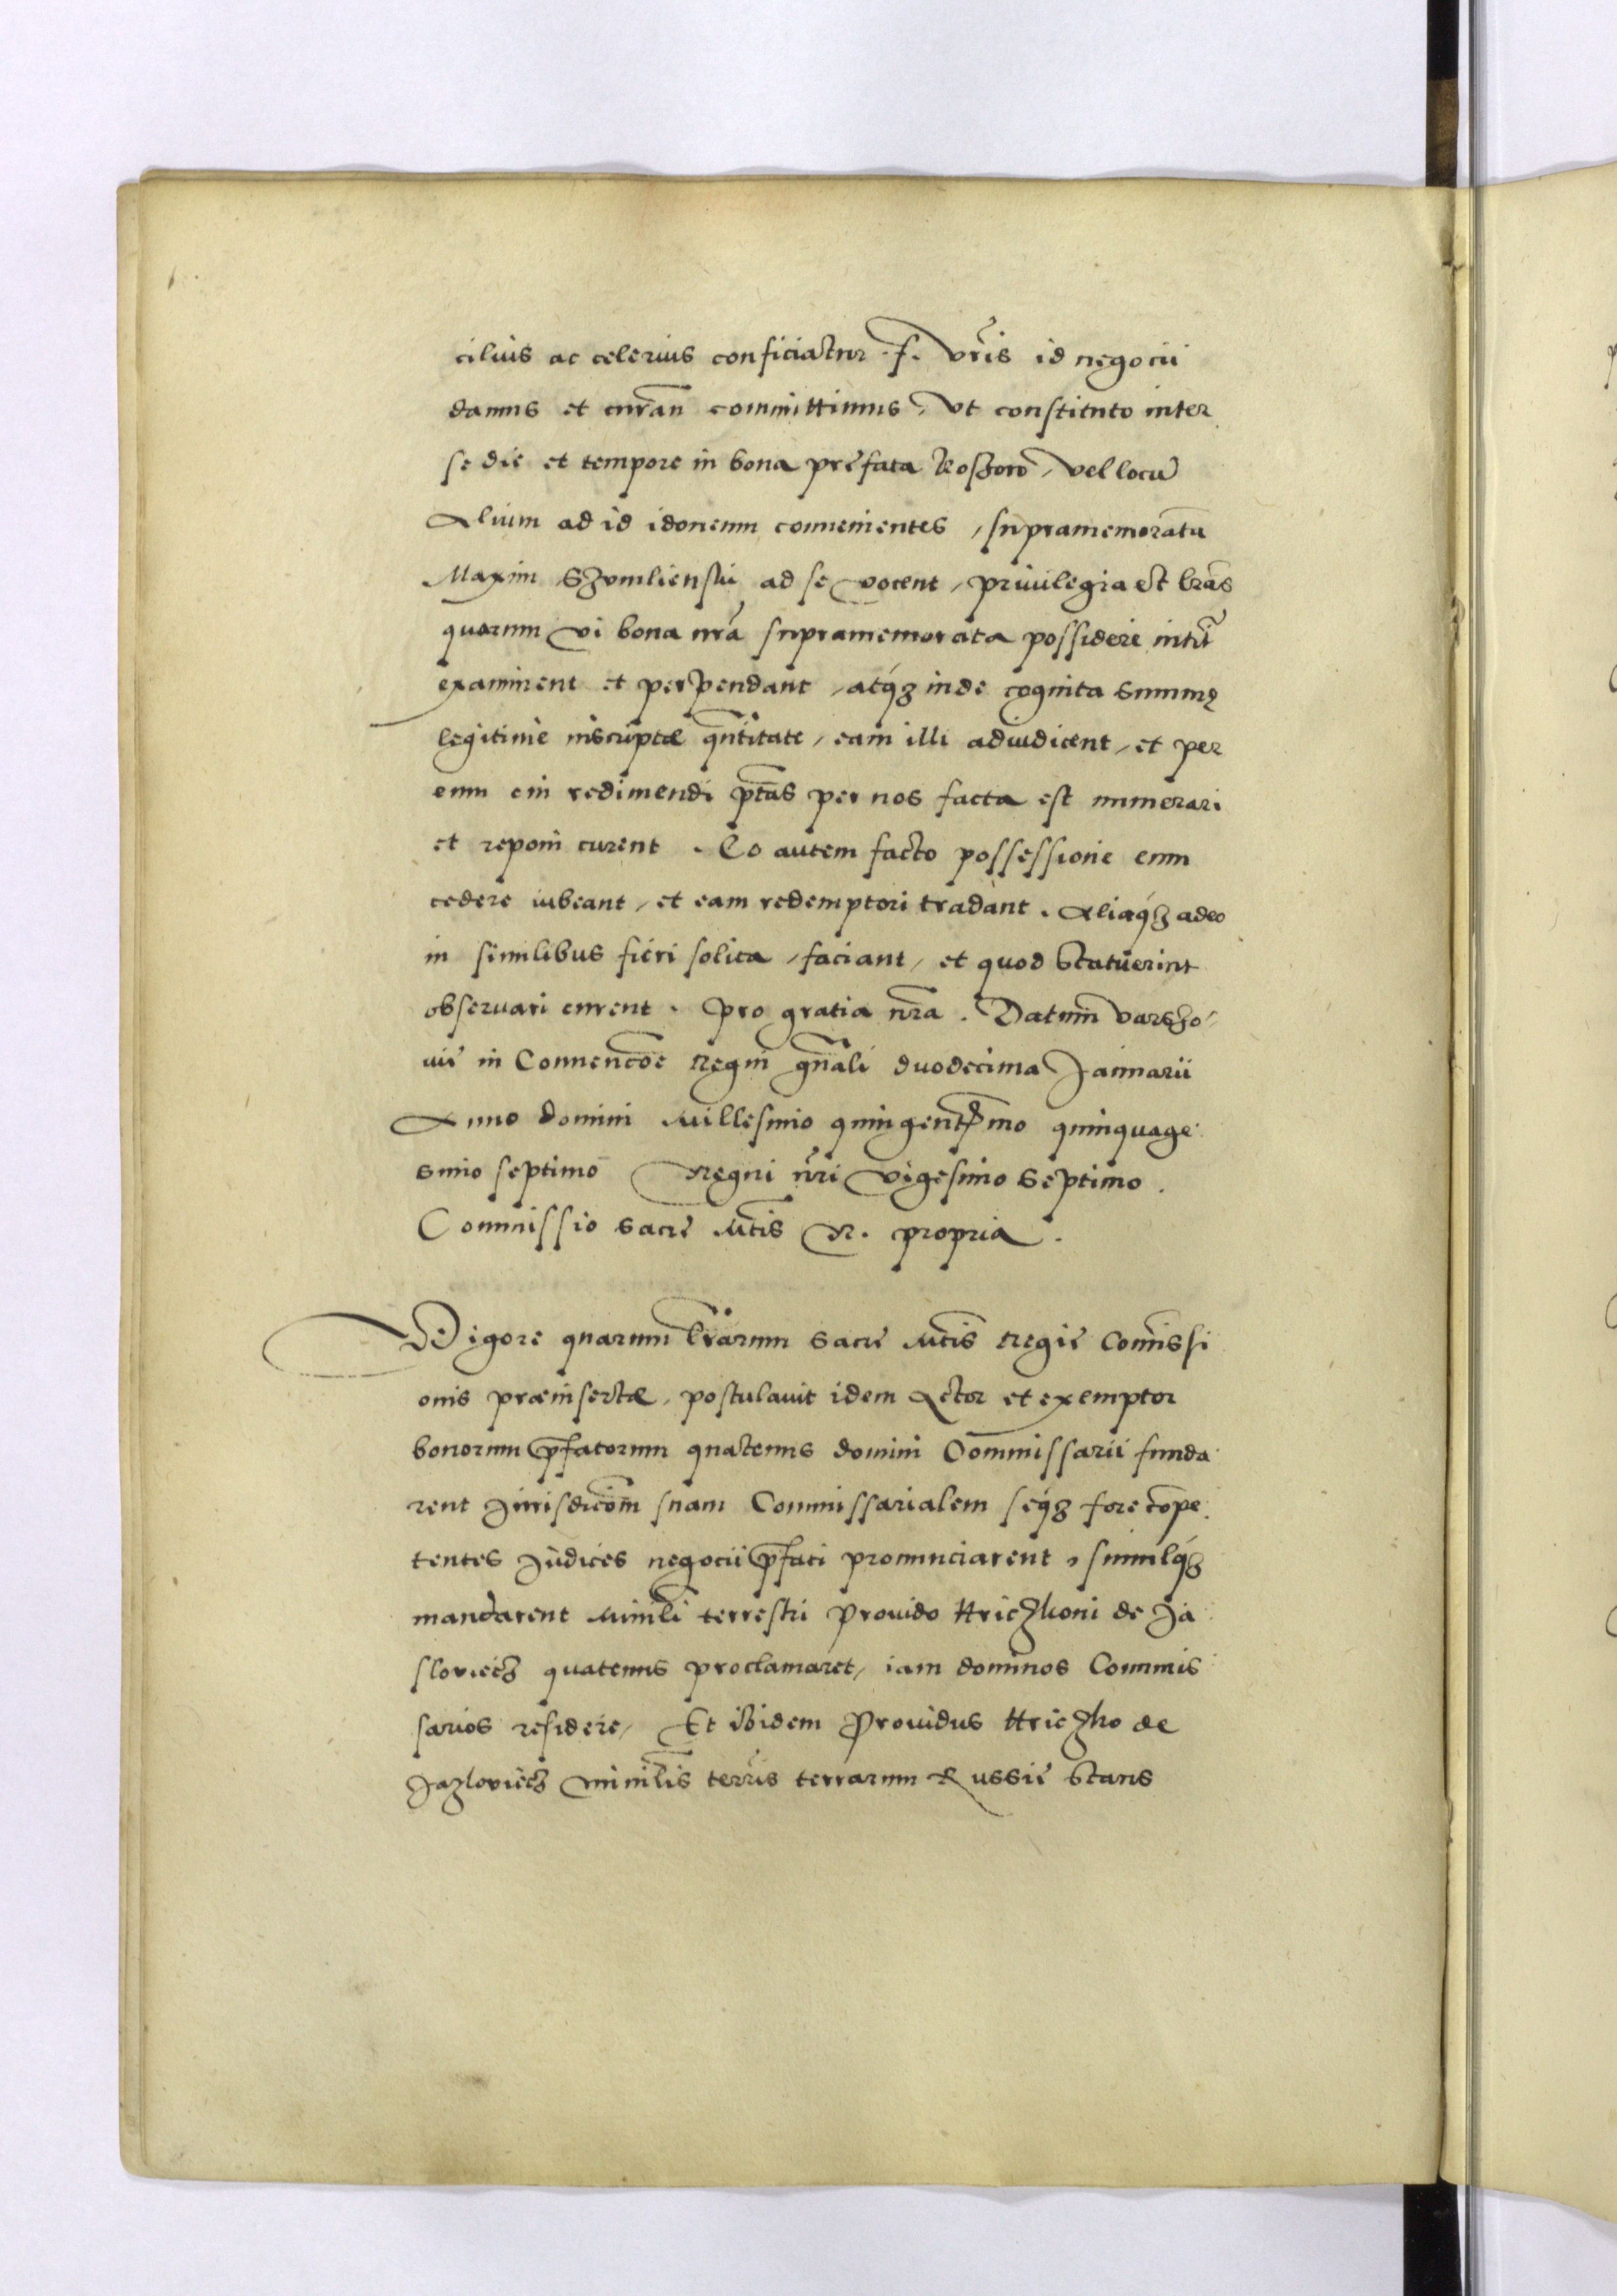 cilius ac celerius conficiatur. f. vr̃is id negocii
damus et curãm committimus, vt constituto inter
se die et tempore in bona prefata Koszoro, vel locũ
Alium ad id idoneum conuenientes, supramemoratũ
Maxim Szumlienski ad se vocent, priuilegia et lr̃as
quorum vi bona nr̃a supramemorata possidere intr̃
examinent et perpendant, atq́ꝫ inde cognita summę
legitime inscriptæ qñtitate, eam illi adiudicent, et per
eum cui redimendi ptãs per nos facta est numerari
et reponi curent. Eo autem facto possessione eum
cedere iubeant, et eam redemptori tradant. Aliaq́ꝫ adeo
in similibus fieri solita, faciant, et quod statuerint
obseruari curent. pro gratia nr̃a. Datum Varszo
uie in Conuenc̃oe Regni gñali duodecima Januarii
Anno domini Millesimo quingentesimo quinquage
simo septimo Regni nr̃i vigesimo septimo.
Commissio sacre Mt̃is R. propria.
Vigore quarum lr̃arum sacre Mt̃is Regie Com̃issi
onis præinsertæ, postulauit idem Actor et exemptor
bonorum p̃fatorum quatenus domini Commissarii funda
rent Jurisdic̃om suam Commissarialem seq́ꝫ fore c̃ope
tentes Judices negocii p̃fati pronunciarent, simulq́ꝫ
mandarent Minlĩ terrestri prouido Hriczkoni de Ja
sloviecz quatenus proclamaret, iam dominos Commis
sarios residere, Et ibidem Prouidus Hriczko de
Jazloviecz minlĩs terr̃is terrarum Russie stans